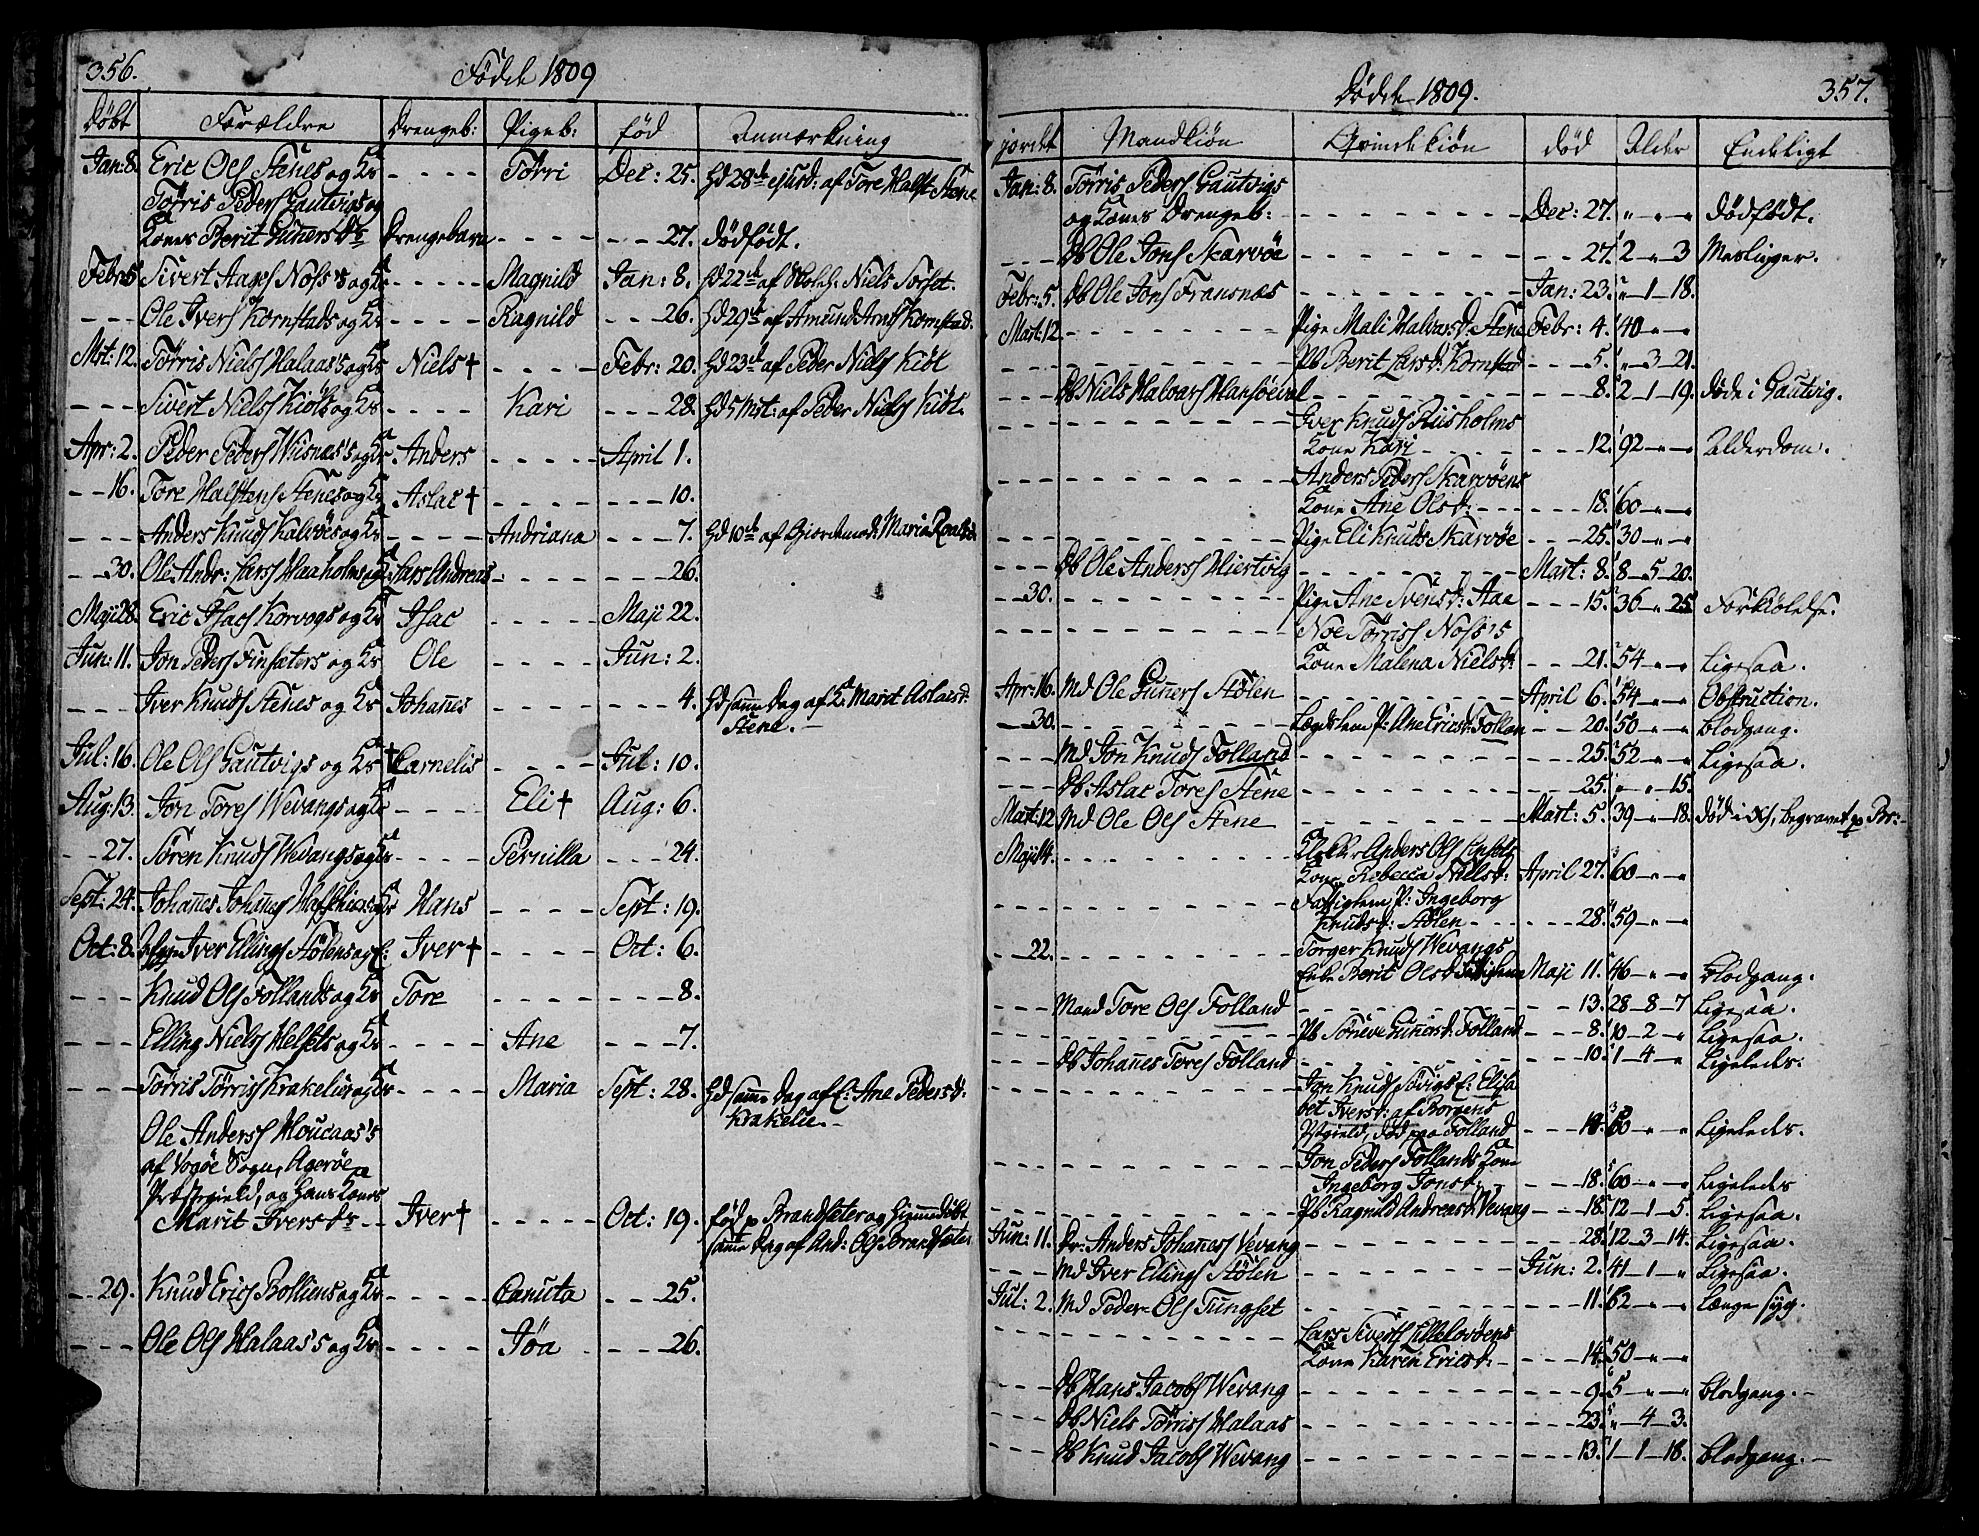 356.
Födde 1809
Döbt Forældre Drengeb: Pigeb: fød Anmærkning
Jan: 8. Eric Ols Stenes og H: - - - - Törri Dec: 25. Hd 28de ejusd: af Tore Halst: Stene
Törris Peders Gautvigs og
Kones Berit Guners Dr Drengebarn - - - - - - 27. dödfödt.
Febr: 5. Sivert Aages Noss's og - - - - Magnild Jan: 8. Hd 22de af Niels Torset.
- - - Ole Ivers Kornstads og - - - - Ragnild - - - 26. Hd 29de af Amund Arns Kornstad.
Mst: 12. Törris Niels Halaas's og Niels † - - - - Febr: 20. Hd 23de af Peder Niels Kiöl
- - - Sivert Niels Kiöls og - - - - Kari - - - 28. Hd 5 Mst: af Peder Niels Kiöl.
Apr: 2. Peder Peders Wiisnæs's og Anders - - - - April 1.
- - 16. Tore Halstens Stenes og Aslac † - - - - - - - 10.
- - - Anders Knuds Kalvöes og - - - - Andriana - - - 7. Hd 10de af Giordemod: Maria
- - 30. Ole Andr: Lars Haaholms og Lars Andreas - - - - - - - 26.
Maji 28. Eric Isacs Korvogs og Isac Maji 22.
Jun: 11. Jon Peders Finsæters og Ole - - - - Jun: 2.
- - - Iver Knuds Stenes og Johañes - - - - - - 4. Hd samme Dag af Marit Aslacsd:
Stene. -
Jul: 16. Ole Ols Gautvigs og † Carnelis - - - - Jul: 10.
Aug: 13. Jon Tores Wevangs og - - - - Eli † Aug: 6.
- - 27. Sören Knuds Wevangs og - - - - Pernilla - - - 24.
Sept: 24. Johañes Johañes og Hans - - - - Sept: 19.
Oct: 8. Iver Ellings Stölens og E: Iver † - - - - Oct: 6.
- - - Knud Ols Follands og Tore - - - - - - - 8.
- - - Elling Niels og - - - - Ane - - - 7.
- - - Törris Törris Krakelies og - - - - Maria Sept: 28. Hd samme Dag af E: Ane Pedersd:
Krakelie. -
Ole Anders Moucaas's
af Vogöe Sogn, Ageröe
Præstegield, og Hans Kones
Marit Ivers Dr - - Iver † - - - - Oct: 19. fød p Brandsæter og Hjemmedöbt
samme Dag af And: Ols Brandsæter
- - 29. Knud Erics Bolliens og - - - - Canuta - - - 25.
- - - Ole Ols Halaas's og - - - - Jöa - - - 26.
Dödde 1809.
357.
jordet Mandkiön Qvindekiön död Alder Endeligt
Jan: 8. Törris Peders Gautvigs
og Kones Drengeb: - - - - - - Dec: 27. " - " - " dödfödt.
- - - Db Ole Jons Skarvöe - - - - - - 27. 2 - " - 3 Meslinger.
Febr: 5. Db Ole Jons Fransnæs - - - - - - Jan: 23. " - 1 - 18.
Mart: 12. - - - - - - Pige Mali Halvarsd: Stene Febr: 4. 40 - " - "
- - - - - - Pb Berit Larsd: Kornstad - - - 5. " - 3 - 21.
- - - Db Niels Halvars - - - - - - 8. 2 - 1 - 19. döde i Gautvig.
- - - - - - Iver Knuds Riisholms
Kone Kari - - - - - - 12. 92 - " - " Alderdom.
- - - - - - Anders Peders Skarvöens
Kone Ane Olsd: - - - - - - 18. 60 - " - "
- - - - - - Pige Eli Knudsd: Skarvöe - - - 25. 30 - " - "
- - - Db Ole Anders Hiertvig - - - - - - Mart: 8. 8 - 5 - 20.
- - 30. - - - - - - Pige Ane Svensd: Aae - - - 15. 36 - " - 25 Forkiölelse.
- - - - - - Noe Törris Noss's
Kone Malena Nielsd: - - - 21. 54 - " - " Ligesaa.
Apr: 16. Md Ole Guners Stölen - - - - - - April 6. 54 - " - " Obstruction.
- - 30. - - - - - - Lægdslem P: Ane Ericsd: Follan - - - 20. 50 - " - " Blodgang.
- - - Md Jon Knuds Folland - - - - - - 25. 52 - " - " Ligesaa.
- - - Db Aslac Tores Stene - - - - - - 25. " - " - 15.
Mart: 12 Md Ole Ols Stene - - - - - - Mart: 5. 39 - " - 18. död i begravet p Br: -
Maji 14. - - - - - - Anders Ols
Kone Rebecca Nielsd: April 27. 60 - " - "
- - - - - - Fattiglem P: Ingeborg
Knudsd: Stölen - - - - - 28. 59 - " - "
- - 22. - - - - - - Torger Knuds Wevangs
Enke Berit Olsd: Fattiglem Maji 11. 46 - " - " Blodgang.
- - - Mand Tore Ols Folland - - - - - - 13. 28 - 8 - 7 Ligesaa.
- - - - - - Pb Töneve Gunersd: Folland - - 8. 10 - 2 - " Ligesaa.
- - - Db Johañes Tores Folland - - - - - - 10. 1 - 4 - " Ligeledes.
- - - - - - Jon Knuds Sövigs E: Elisa
bet Iversd: af Borgens
Pstgield, död paa Folland - - - 14. 60 - " - " Ligeledes.
- - - - - - Jon Peders Follands Kone
Ingeborg Jonsd: - - - 18. 60 - " - " Ligeledes
- - - - - - Pb Ragnild Andreasd: Wevang - - 18. 12 - 1 - 5. Ligesaa.
Jun: 11. Dr: Anders Johañes Wevang - - - - - - 28. 12 - 3 - 14. Ligesaa.
- - - Md Iver Ellings Stölen - - - - - - Jun: 2. 41 - 1 - " Ligesaa.
Jul: 2. Md Peder Ols Tungset - - - - - - 11. 62 - " - " Længe syg.
- - - - - - Lars Siverts Lillelovöens
Kone Karen Ericsd: - - - - 14. 50 - " - "
- - - Db Hans Jacobs Wevang - - - - - - 9. 5 - " - " Blodgang. -
- - - Db Niels Törris Halaas - - - - - - 23. " - 4 - 3.
- - - Db Knud Jacobs Wevang - - - - - - 13. 1 - 1 - 18. Blodgang. -